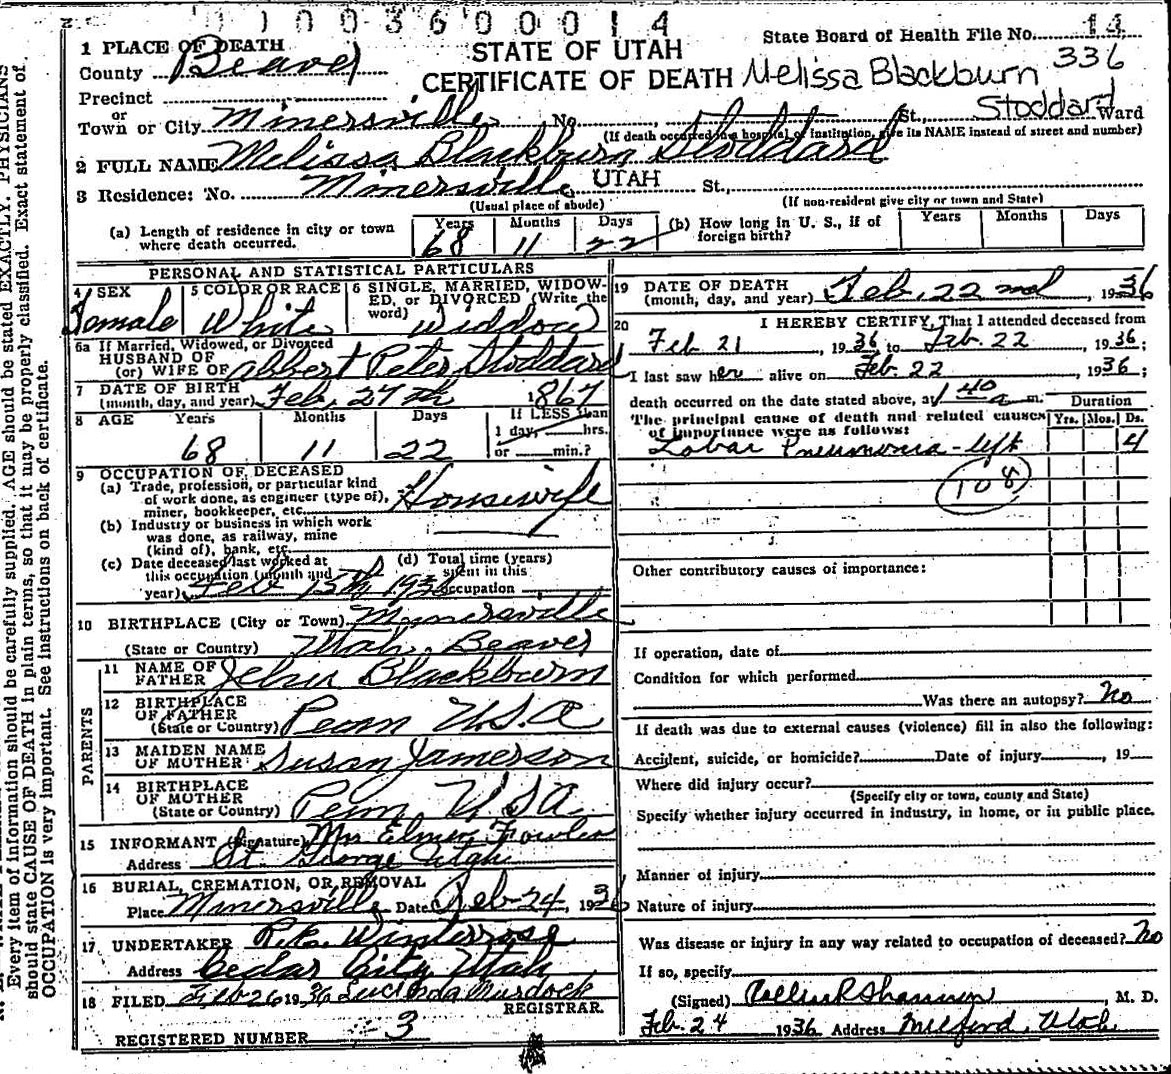 1 0 0 3 6 0 0 0 1 4
State Board of Health File No. 14
1 PLACE OF DEATH
STATE OF UTAH
County Beaver
CERTIFICATE OF DEATH Melissa Blackburn 336
Stoddard
Precinct
or
Town or City Minersville No. St., Ward
(If death occurred in a hospital or institution, give its NAME instead of street and number)
2 FULL NAME Melissa Blackburn Stoddard
3 Residence: No. Minersville UTAH St.,
(Usual place of abode) (If non-resident give city or town and State)
(a) Length of residence in city or town where death occurred. Years 68 Months 11 Days 22 (b) How long in U. S., if of foreign birth? Years Months Days
PERSONAL AND STATISTICAL PARTICULARS
4 SEX Female
5 COLOR OR RACE White
6 SINGLE, MARRIED, WIDOW-
ED, or DIVORCED (Write the
word) Widdow
6a If Married, Widowed, or Divorced
HUSBAND OF
(or) WIFE OF Albert Peter Stoddard
7 DATE OF BIRTH
(month, day, and year) Feb, 27th 1867
8 AGE Years 68 Months 11 Days 22 If LESS than
1 day, hrs.
or min.?
9 OCCUPATION OF DECEASED
(a) Trade, profession, or particular kind
of work done, as engineer (type of),
miner, bookkeeper, etc. Housewife
(b) Industry or business in which work
was done, as railway, mine
(kind of), bank, etc.
(c) Date deceased last worked at
this occupation (month and
year) Feb 15th 1936
(d) Total time (years)
spent in this
occupation
10 BIRTHPLACE (City or Town) Mynersville
(State or Country) Utah, Beaver
PARENTS
11 NAME OF
FATHER Jehu Blackburn
12 BIRTHPLACE
OF FATHER
(State or Country) Penn U.S.A
13 MAIDEN NAME
OF MOTHER Susan Jamerson
14 BIRTHPLACE
OF MOTHER
(State or Country) Penn U.S.A.
15 INFORMANT (Signature) Mrs Elmer Fowler
Address St. George Utah
16 BURIAL, CREMATION, OR REMOVAL
Place Minersville Date Feb-24, 1936
17 UNDERTAKER Winterrose
Address Cedar City Utah
18 FILED Feb 26 1936 Lucinda Murdock
REGISTRAR.
REGISTERED NUMBER 3
19 DATE OF DEATH
(month, day, and year) Feb. 22 nd, 1936
20 I HEREBY CERTIFY, That I attended deceased from
Feb 21, 1936 to Feb. 22, 1936;
I last saw her alive on Feb. 22, 1936;
death occurred on the date stated above, at 1 40 a m. Duration
The principal cause of death and related causes Yrs. Mos. Ds.
of importance were as follows:
Lobar Pneumonia - left 4
108
Other contributory causes of importance:
If operation, date of
Condition for which performed
Was there an autopsy? No
If death was due to external causes (violence) fill in also the following:
Accident, suicide, or homicide? Date of injury, 19
Where did injury occur?
(Specify city or town, county and State)
Specify whether injury occurred in industry, in home, or in public place.
Manner of injury
Nature of injury
Was disease or injury in any way related to occupation of deceased? No
If so, specify
(Signed), M. D.
Feb. 24 1936 Address Milford, Utah
Every item of information should be carefully supplied. AGE should be stated EXACTLY. PHYSICIANS
should state CAUSE OF DEATH in plain terms, so that it may be properly classified. Exact statement of
OCCUPATION is very important. See instructions on back of certificate.